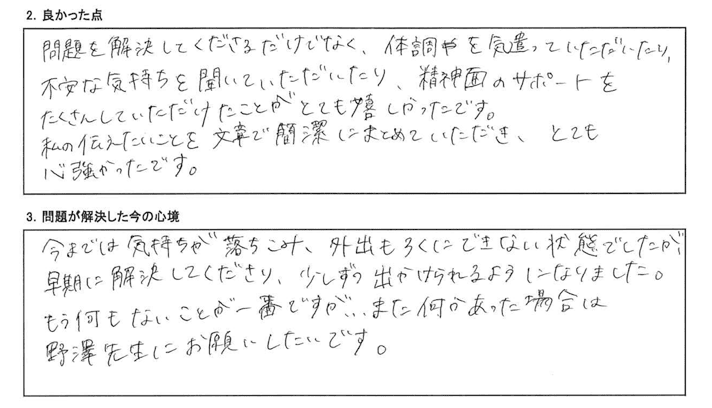 2. 良かった点
問題を解決してくださるだけでなく、体調やを気遣っていただいたり、
不安な気持ちを聞いていただいたり、精神面のサポートを
たくさんしていただけたことがとても嬉しかったです。
私の伝えたいことを文章で簡潔にまとめていただき、とても
心強かったです。
3. 問題が解決した今の心境
今までは気持ちが落ちこみ、外出もろくにできない状態でしたが、
早期に解決してくださり、少しずつ出かけられるようになりました。
もう何もないことが一番ですが、、また何かあった場合は
野澤先生にお願いしたいです。